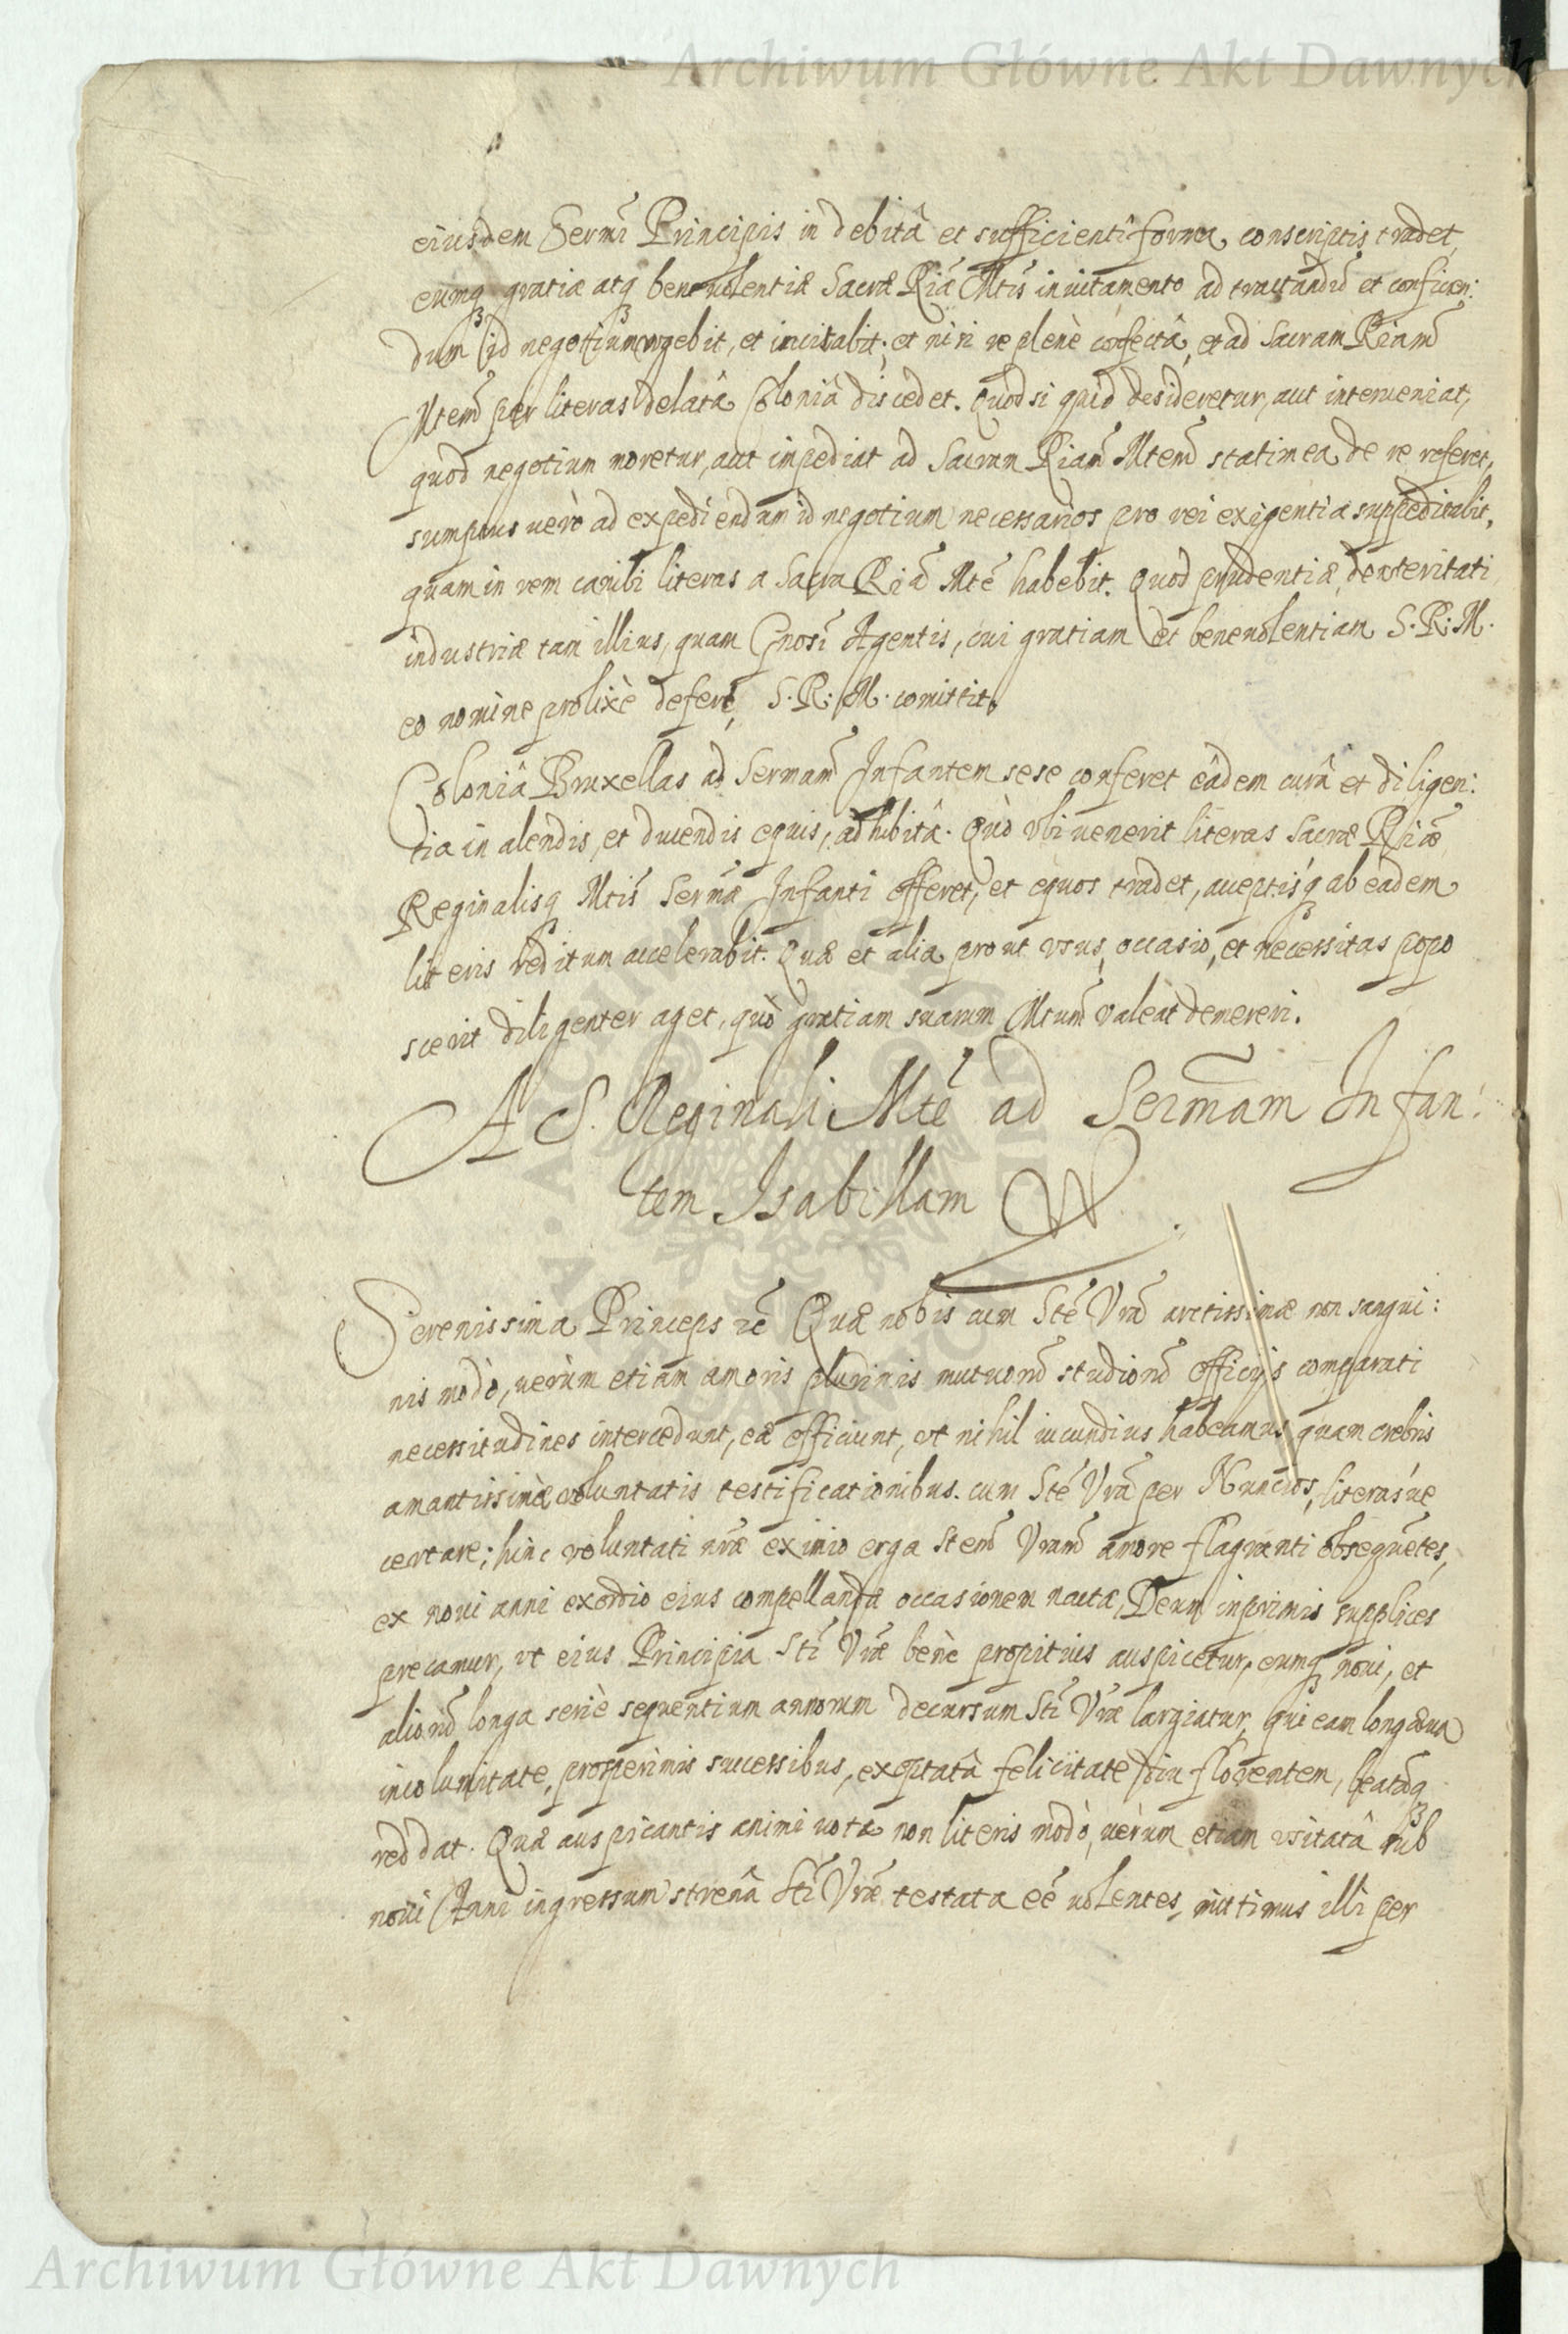 Archiwum Główne Akt Dawnych
eiusdem Sermi Principis in debitâ et sufficienti forma conscriptis tradet,
eumq gratiæ atq beneuolentiæ Sacræ Riæ Mtis inuitamento ad tractandũ et conficien:
dum id negotium urgebit, et incitabit; et nisi re plenè cõfectâ, et ad Sacram Riam
Mtem per literas delatâ Coloniâ discedet. Quod si quid desideretur, aut interueniat,
quod negotium moretur, aut impediat ad Sacram Riam Mtem statim ea de re referet,
sumptus uerò ad expediendum id negotium necessarios pro rei exigentia suppeditabit,
quam in rem cambi literas a Sacra Riã Mte habebit. Quod prudentiæ, dexteritati
industriæ tam illius, quam Gnosi Agentis, cui gratiam et beneuolentiam S. R. M.
eo nomine prolixè deferet, S. R. M. comittit.
Coloniâ Bruxellas ad Sermam Infantem sese conferet eâdem curâ et diligen:
tia in alendis, et ducendis equis, adhibitâ. Quò vbi uenerit literas Sacræ Riæ
Reginalisq Mtis Sermæ Infanti offeret, et equos tradet, acceptisq ab eadem
literis reditum accelerabit. Quæ et alia prout vsus, occasio, et necessitas popo
scerit diligenter aget, quò gratiam suarum Mtum valeat demereri.
A S. Reginali Mte ad Sermam Infan:
tem Isabellam
Serenissima Princeps etc Quæ nobis cum Ste Vrã arctissimæ non sangui:
nis modò, uerùm etiam amoris plurimis mutuorũ studiorũ officijs comparati
necessitudines intercedunt, eæ efficiunt, vt nihil iucundius habeamus quam crebris
amantissimæ voluntatis testificationibus cum Ste Vrã per Nuncios, literas ue
certare; hinc voluntati nræ eximio erga Stem Vram amore flagranti obsequẽtes,
ex noui anni exordio eius compellandæ occasionem nactæ, Deum inprimis supplices
precamur, vt eius Principia Sti Vræ benè propitius auspicetur, eumq noui, et
aliorũ longa seriè sequentium annorum decursum Sti Vræ largiatur, qui eam longæua
incolumitate, prosperimis successibus, exoptatâ felicitate diu florentem, beatãq
reddat. Quæ auspicantis animi uota non literis modò, uerùm etiam vsitatâ sub
noui Anni ingressum strenâ Sti Vræ testata eẽ uolentes, mittimus illi per
Archiwum Główne Akt Dawnych